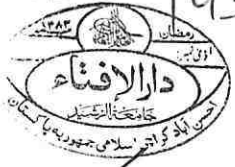 رمضان
۱۳۸۳
دارالافتاء
جامعۃ الرشید
احسن آباد کراچی اسلامی جمہوریہ پاکستان